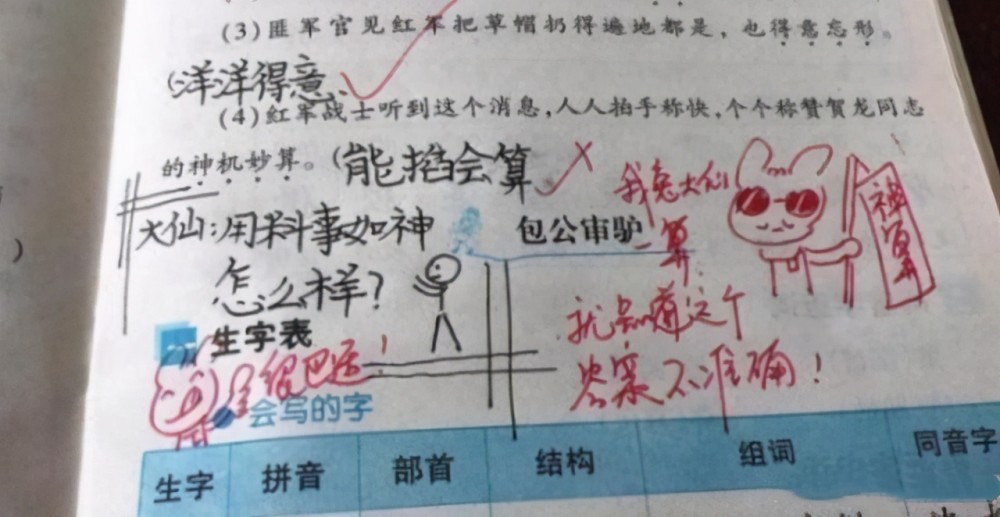 (3)匪军官见红军把草帽扔得遍地都是,也得意忘形。
(洋洋得意
(4)红军战士听到这个消息,人人拍手称快,个个称赞贺龙同志
的神机妙算。(能掐会算
我兔大仙
一算
神算
大仙:用料事如神
怎么样?
包公审驴
就知道这个
答案不准确!
生字表
很巴适!
会写的字
生字 拼音 部首 结构 组词 同音字